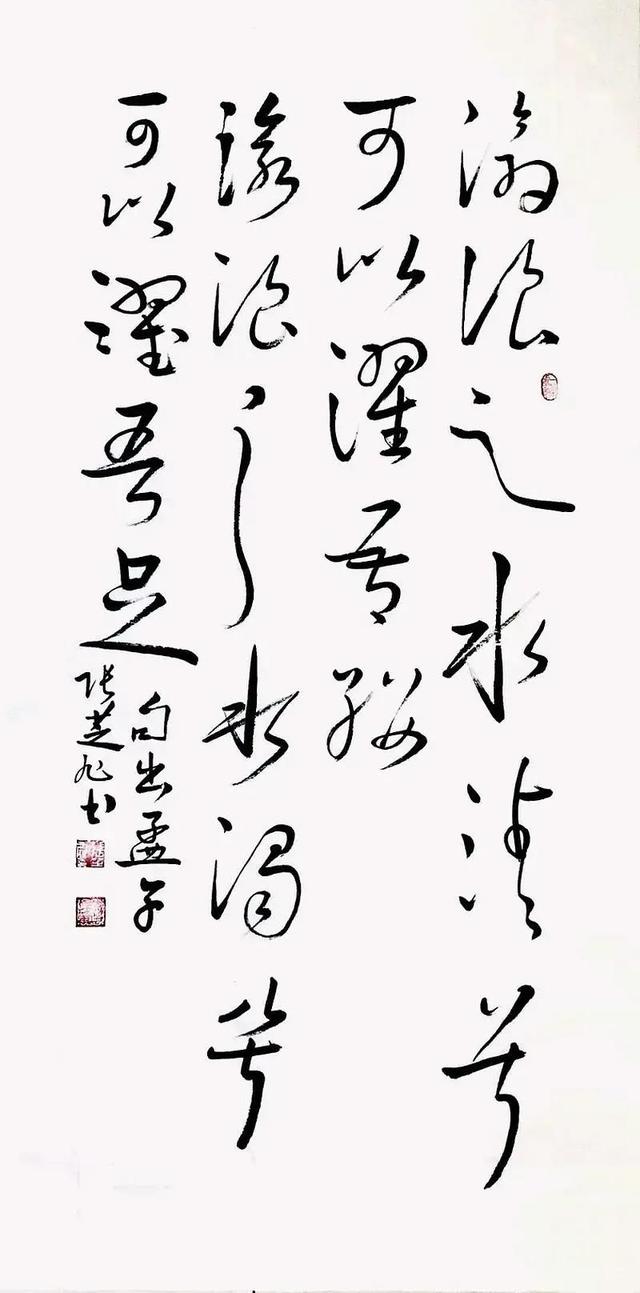 滄浪之水清兮
可以濯吾纓
滄浪之水濁兮
可以濯吾足
句出孟子
张芝旭书